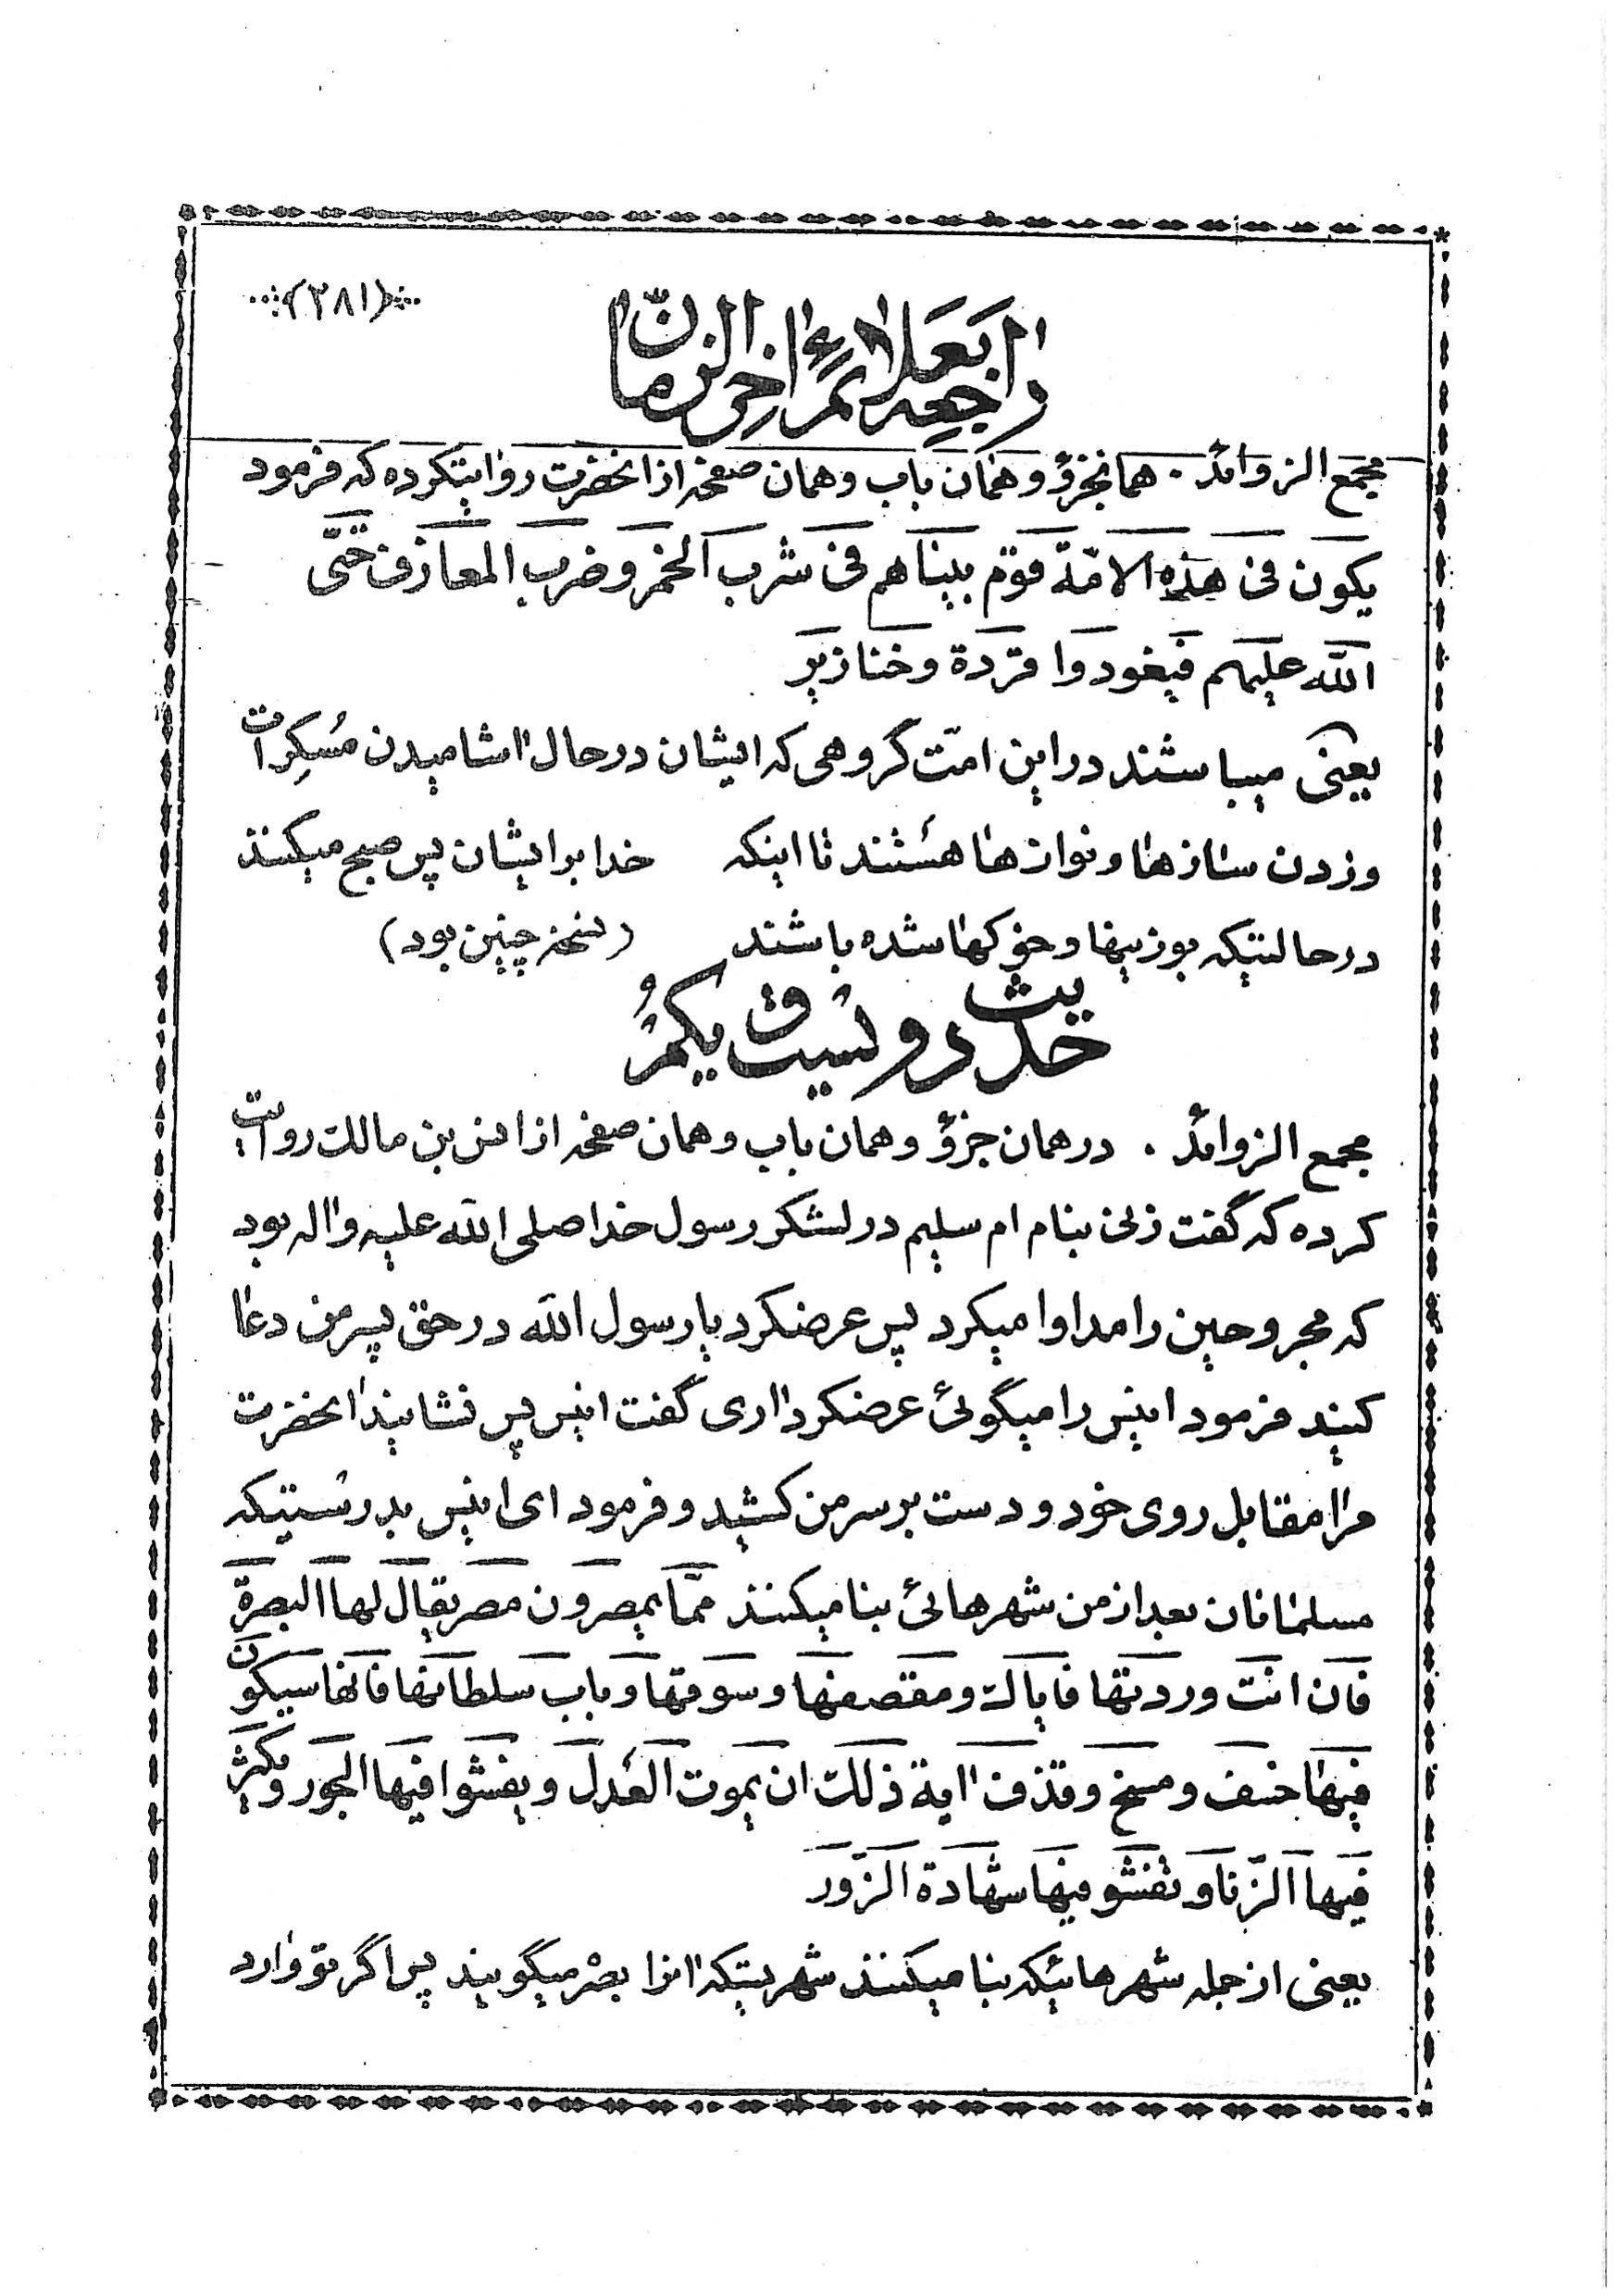 (۲۸۱)
راجع بعلائم آخر الزمان
مجمع الزوائد . همانجزؤ و همان باب و همان صفحه از انحضرت روایتکرده که فرمود
یکون فی هذه الامّة قوم بیناهم فی شرب الخمر و ضرب المعازف حتّی
الله علیهم فیغودوا قردة و خنازیر
یعنی میباشند در این امّت گروهی که ایشان در حال اشامیدن مُسکِرات
و زدن سازها و نوازها هستند تا اینکه خدا بر ایشان پس صبح میکنند
در حالتیکه بوزینها و خوکها شده باشند (نسخه چنین بود)
حدیث دویست و یکم
مجمع الزوائد . در همان جزؤ و همان باب و همان صفحه از انس بن مالک روایت
کرده که گفت زنی بنام ام سلیم در لشکر رسول خدا صلی الله علیه و اله بود
که مجروحین را مداوا میکرد پس عرضکرد یا رسول الله در حق پسر من دعا
کنید فرمود انیس را میگوئی عرضکرد اری گفت انیس پس نشانید انحضرت
مرا مقابل روی خود و دست بر سر من کشید و فرمود ای انیس بدرستیکه
مسلمانان بعد از من شهرهائی بنا میکنند ممّا یمصرون مصر یقال لها البصرة
فان انت وردتها فایاک و مقصفها و سوقها و باب سلطانها فانها سیکون
فیها خسف و مسخ و قذف ایة ذلک ان یموت العدل و یفشوا فیها الجور و یکثر
فیها الزّنا و تفشو فیها شهادة الزّور
یعنی از جمله شهرهائیکه بنا میکنند شهریتیکه انرا بصره میگویند پس اگر تو وارد